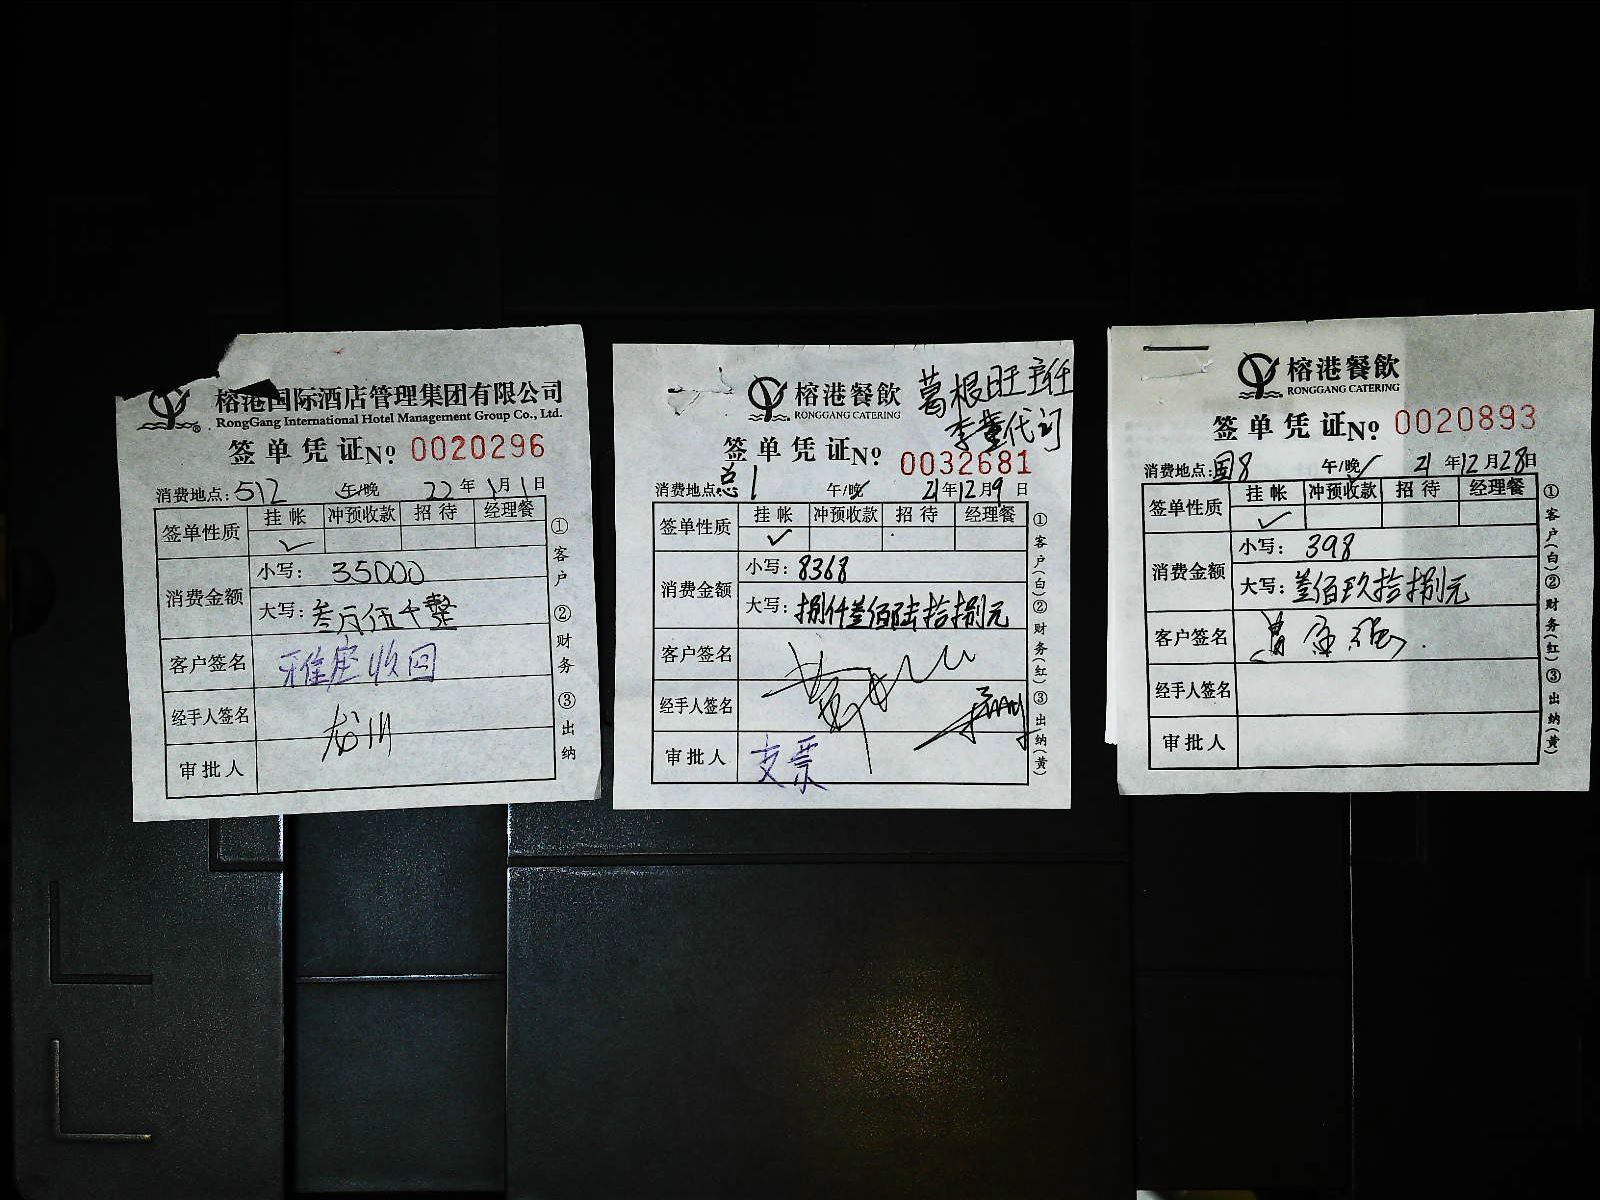 榕港国际酒店管理集团有限公司
RongGang International Hotel Management Group Co., Ltd.
签单凭证 No. 0020296
消费地点: 512 午/晚 22年1月1日
签单性质 挂帐 冲预收款 招待 经理餐
✓
消费金额 小写: 35000
大写: 叁万伍千整
客户签名 雅座收回
经手人签名 龙川
审批人
①客户 ②财务 ③出纳
榕港餐飲
RONGGANG CATERING
葛根旺主任
李董代订
签单凭证 No. 0032681
消费地点 总1 午/晚 21年12月9日
签单性质 挂帐 冲预收款 招待 经理餐
✓
消费金额 小写: 8368
大写: 捌仟叁佰陆拾捌元
客户签名
经手人签名
审批人 支票
①客户(白)②财务(红)③出纳(黄)
榕港餐飲
RONGGANG CATERING
签单凭证 No. 0020893
消费地点: 国8 午/晚 21年12月28日
签单性质 挂帐 冲预收款 招待 经理餐
✓
消费金额 小写: 398
大写: 叁佰玖拾捌元
客户签名
经手人签名
审批人
①客户(白)②财务(红)③出纳(黄)